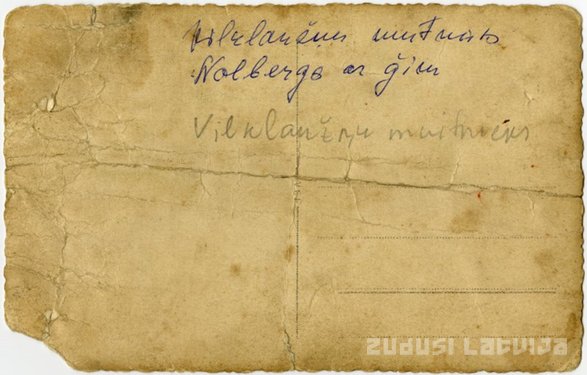 Vilklaužņu muižnieks
Nolbergs ar ģim
Vilklaužņu muižnieks
ZUDUSI LATVIJA